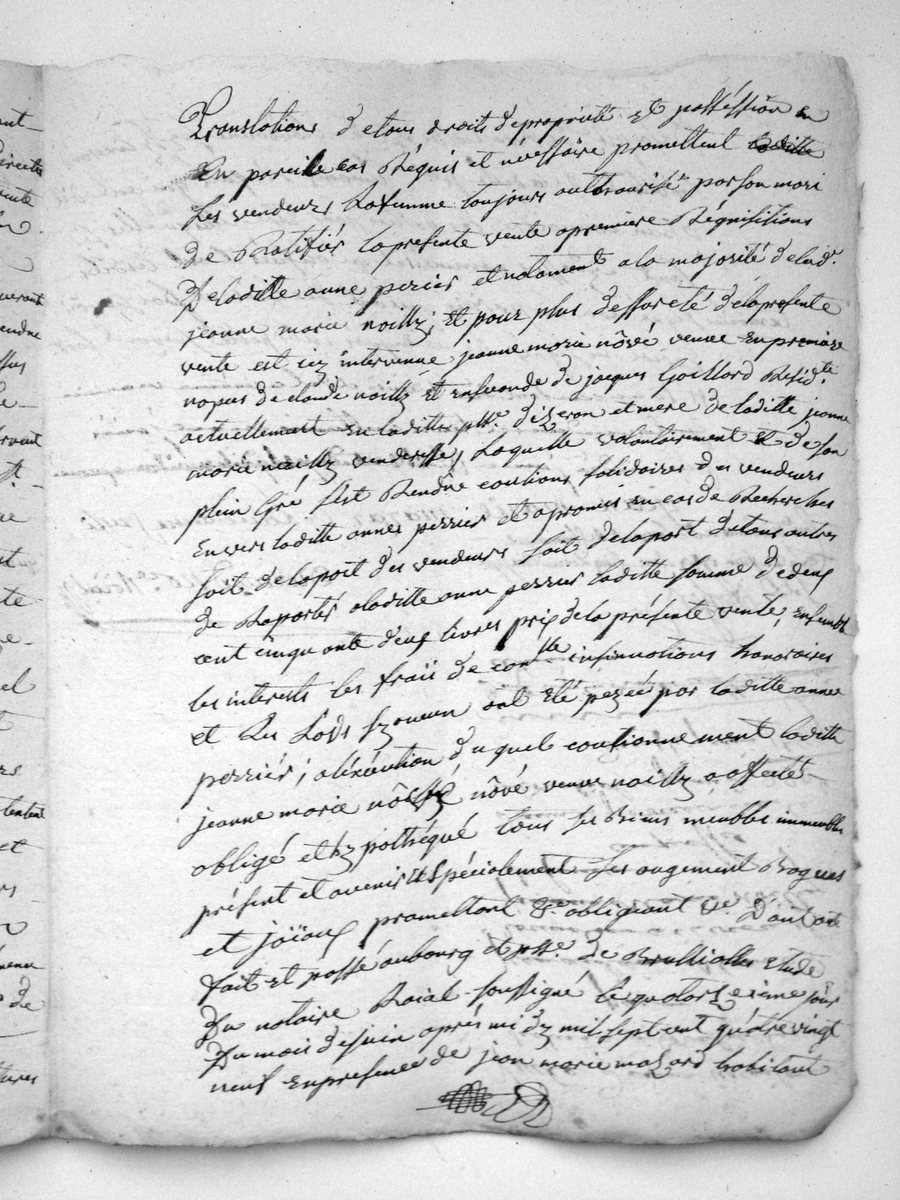 Translations de tous droits de propriété Et possession en
En pareille cas Réquis et néssessaire promettent
Les vendeurs La femme toujours authaurisé par son mari
de Ratifiér la presente vente a premiere Réquisitions
De laditte anne perier et notament a la majorité de lad.e
jeanne marie noilly, Et pour plus d'effureté de la presente
vente est icy intervenue jeanne marie nôvé veuve En premiere
nopces de claude noilly Et En seconde de jacques Goillard Résid.te
actuellement En laditte pss.e d'izeron et mere de laditte jeanne
marie noilly venderesse, Laquelle volontairement Et de son
plein Gré s'est Rendue cautions solidaires des vendeurs
Envers laditte anne perrier et a promis en cas de Recherches
soit de la part des vendeurs soit de la part de tous autres
de Raportér a laditte anne perrier laditte somme de deux
cent cinquante deux livres prix de la présente vente, Ensemble
les interests les frais de con.lle insinuations honoraires
et Les Lods sy aucun ont été payés par laditte anne
perrier, a l'éxécution duquel cautionnement laditte
jeanne marie nôvé veuve noilly a affecté
obligé et hypothéqué tous ses Biens meubles immeubles
présent et avenir et spéciolement ses augment Bagues
et joïaux promettant &.e obligeant &.e Dont acte
fait et passé au bourg et pss.e de Brullioles Etude
Du notaire Roial soussigné le quatorzeième jour
Du mois de juin aprés midy mil sept cent quatre vingt
neuf En presence de jean marie mazard habitant